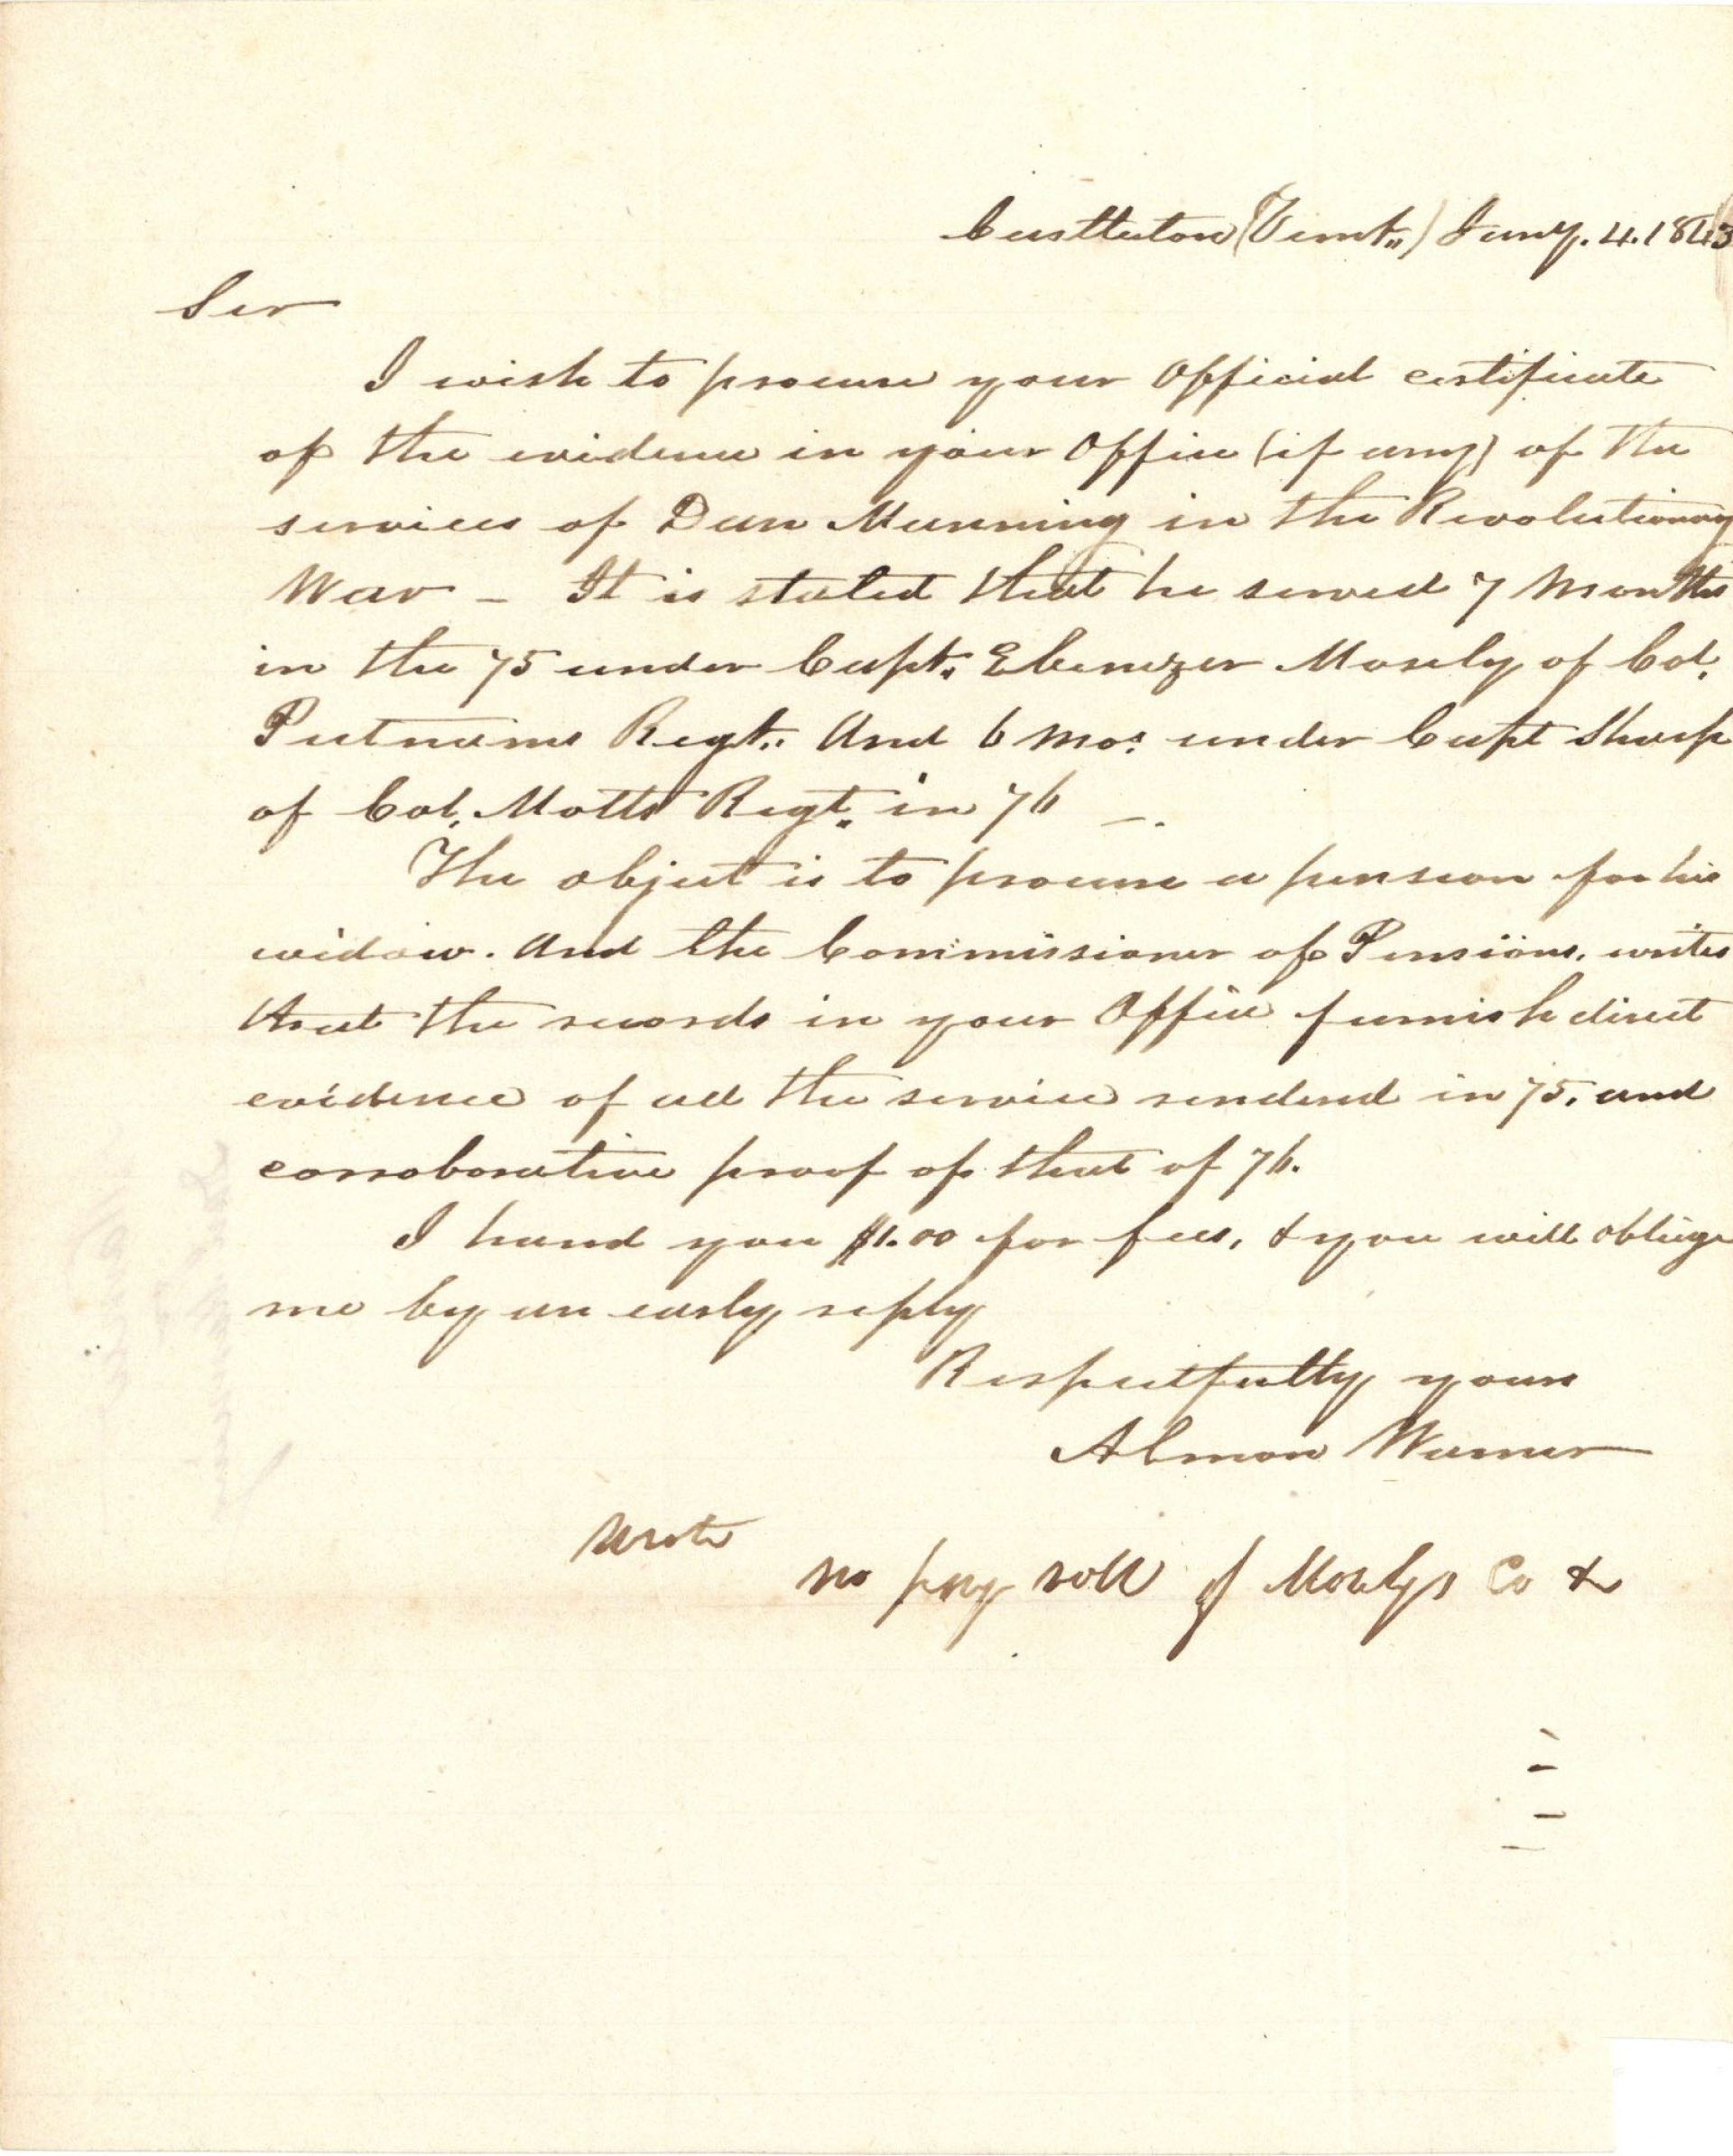 Castleton (Vermt.,) Jany. 4. 1843
Sir
I wish to procure your Official certificate
of the evidence in your Office (if any) of the
services of Dan Manning in the Revolutionary
War - It is stated that he served 7 Months
in the 75 under Capt. Ebenezer Mosely of Col.
Putnams Regt. And 6 mos. under Capt Sharp
of Col. Motts Regt. in 76 -.
The object is to procure a pension for his
widow. And the Commissioner of Pensions, writes
that the records in your Office furnish direct
evidence of all the service rendered in 75, and
corroborative proof of that of 76.
I hand you $1.00 for fees, & you will oblige
me by an early reply
Respectfully yours
Almon Warner
Wrote
no pay roll of Moselys Co &